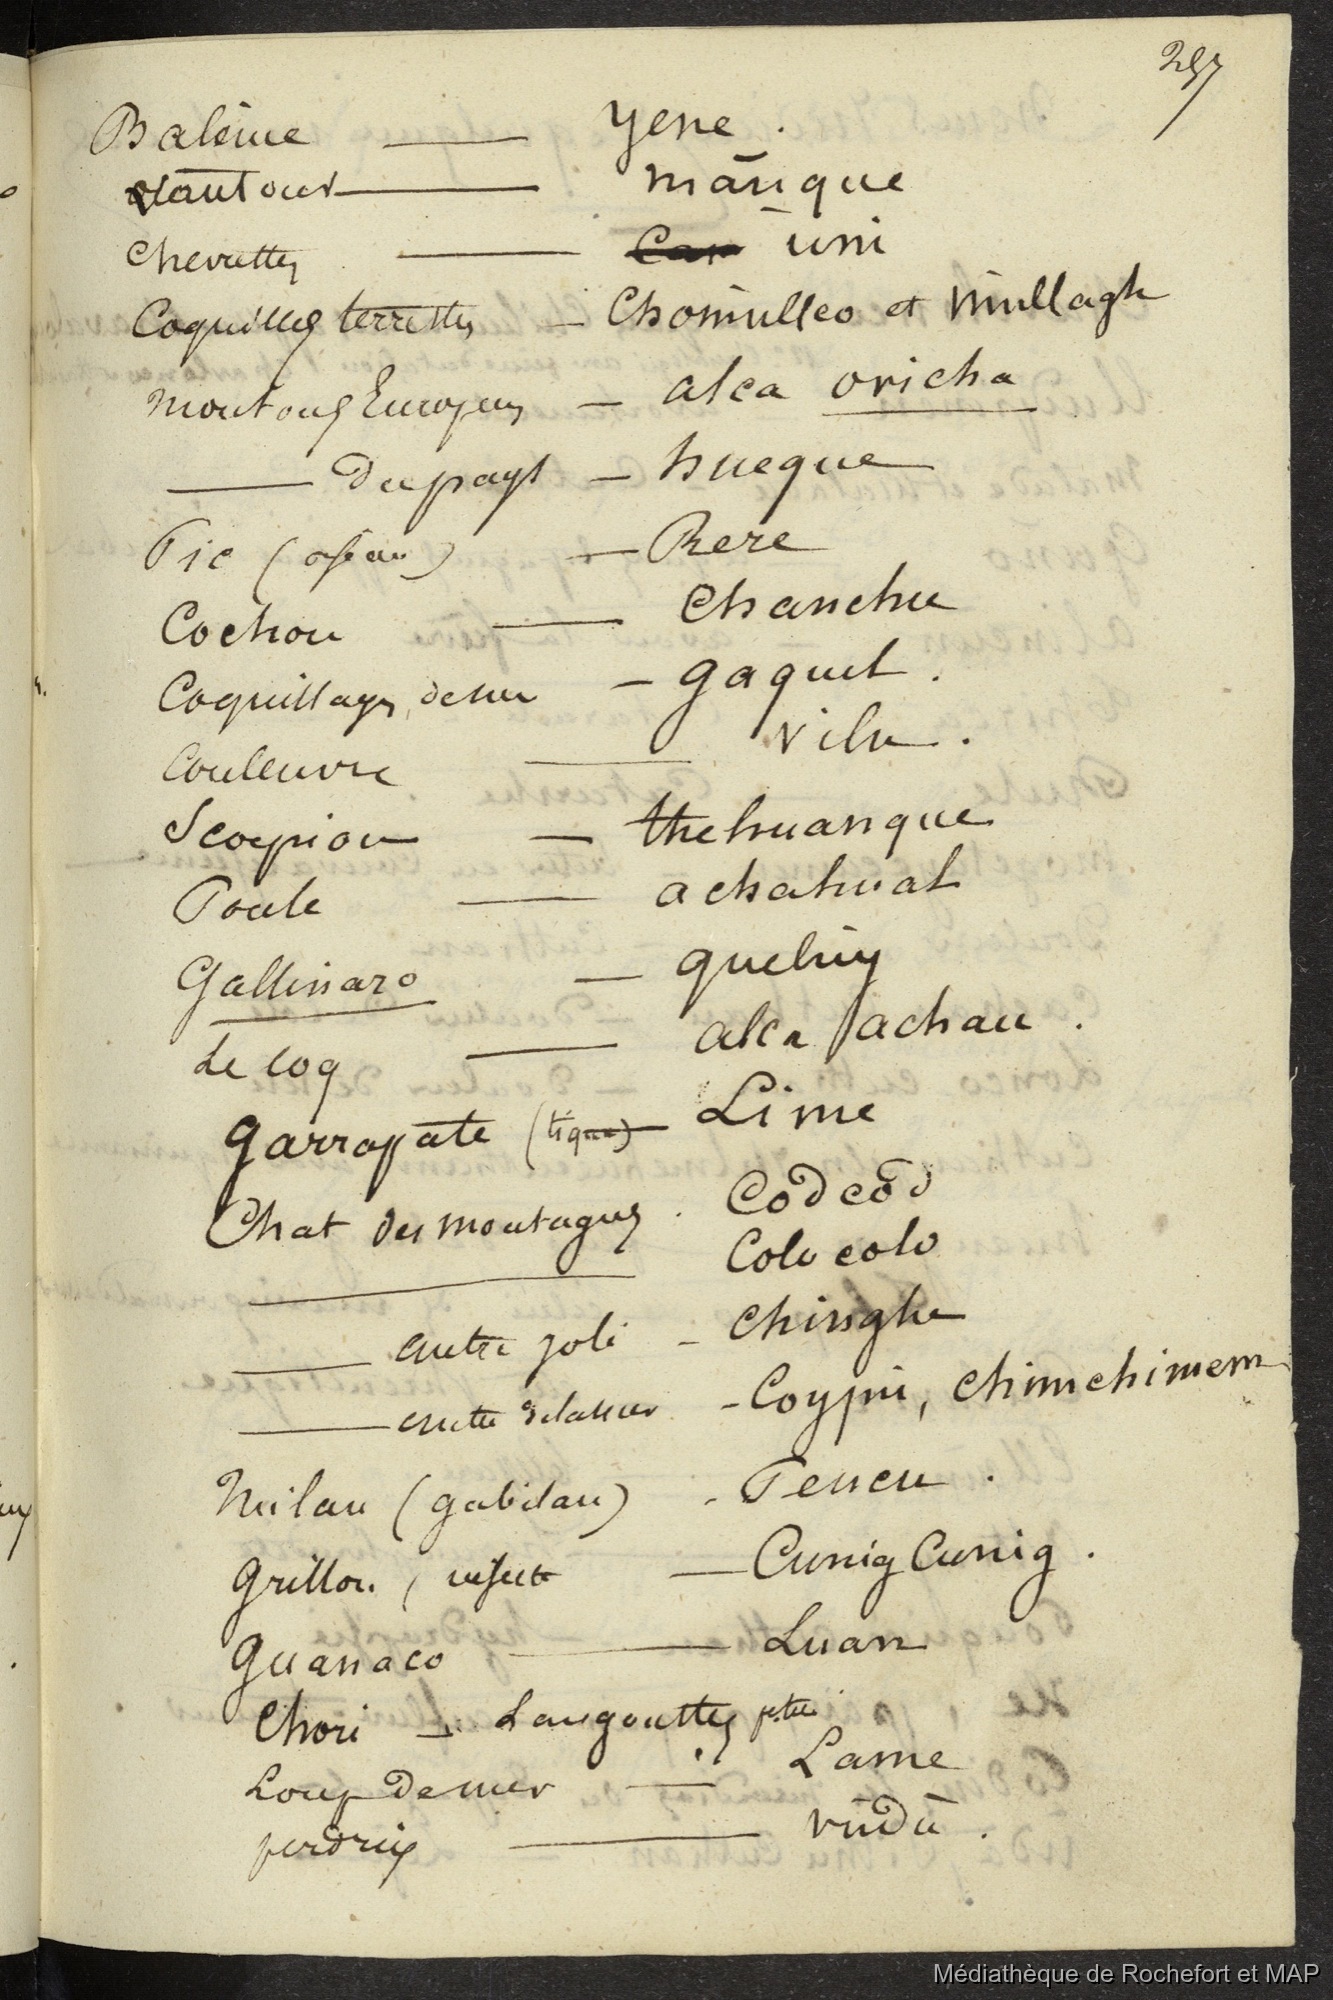 257
Baleine — yene.
Vautour — mañque
Chevrettes — uni
Coquilles terrestres — Chomulleo et Mullagh
moutons Européens — alca oricha
— Du pays — hueque
Pic (oiseau) — Rere
Cochon — Chanchu
Coquillages, de mer — gaquel.
Couleuvre — vilu.
Scorpion — thehuanque
Poule — achahual
Gallinazo — queluy
Le coq — alca achau.
garrapate (tique) — Lime
Chat des montagnes. Codcod
— Colo colo
— autre joli — Chinghe
— autre de la mer — Coypu, Chimchimem
Milan (gabilan) — Teucu.
Grillon, insecte — Cunig Cunig.
Guanaco — Luan
Chori — Langouttes petites
Loup de mer — Lame
perdrix — vudu.
Médiathèque de Rochefort et MAP